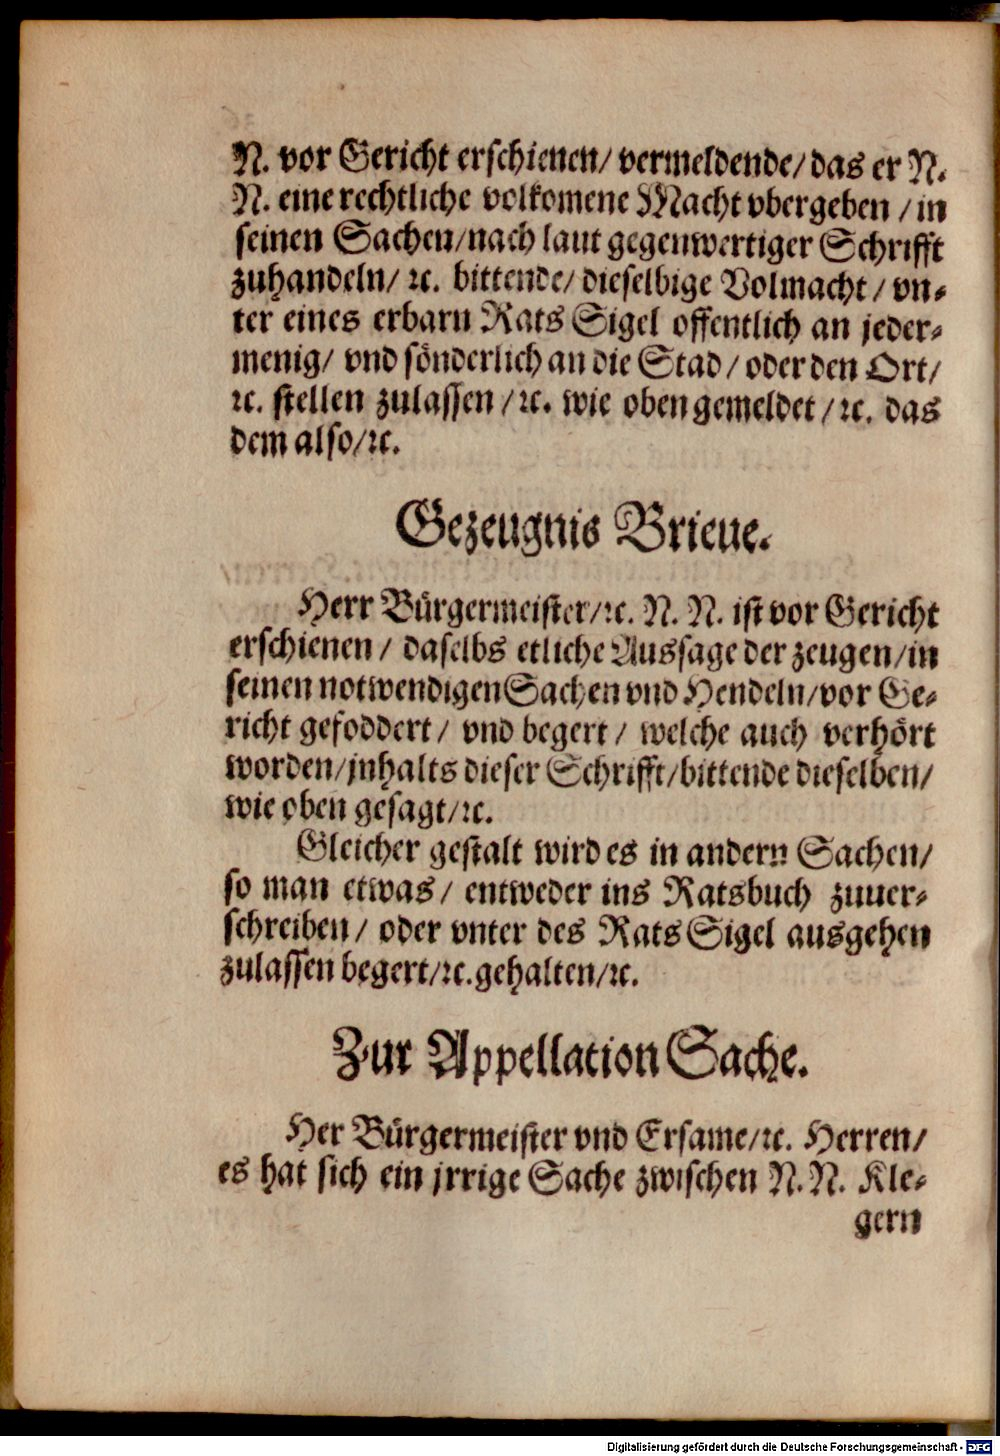 N. vor Gericht erschienen/ vermeldende/ das er N.
N. eine rechtliche volkomene Macht vbergeben / in
seinen Sachen/nach laut gegenwertiger Schrifft
zuhandeln/ ꝛc. bittende/ dieselbige Volmacht / vn-
ter eines erbarn Rats Sigel offentlich an jeder-
menig/ vnd sönderlich an die Stad / oder den Ort/
ꝛc. stellen zulassen /ꝛc. wie oben gemeldet / ꝛc. das
dem also/ꝛc.
Gezeugnis Brieue.
Herr Bürgermeister/ꝛc. N. N. ist vor Gericht
erschienen / daselbs etliche Aussage der zeugen/in
seinen notwendigen Sachen vnd Hendeln/vor Ge-
richt gefoddert / vnd begert / welche auch verhört
worden/jnhalts dieser Schrifft/bittende dieselben/
wie oben gesagt/ꝛc.
Gleicher gestalt wird es in andern Sachen/
so man etwas / entweder ins Ratsbuch zuuer-
schreiben / oder vnter des Rats Sigel ausgehen
zulassen begert/ꝛc. gehalten/ꝛc.
Zur Appellation Sache.
Her Bürgermeister vnd Ersame/ꝛc. Herren/
es hat sich ein jrrige Sache zwischen N. N. Kle-
gern
Digitalisierung gefördert durch die Deutsche Forschungsgemeinschaft - DFG